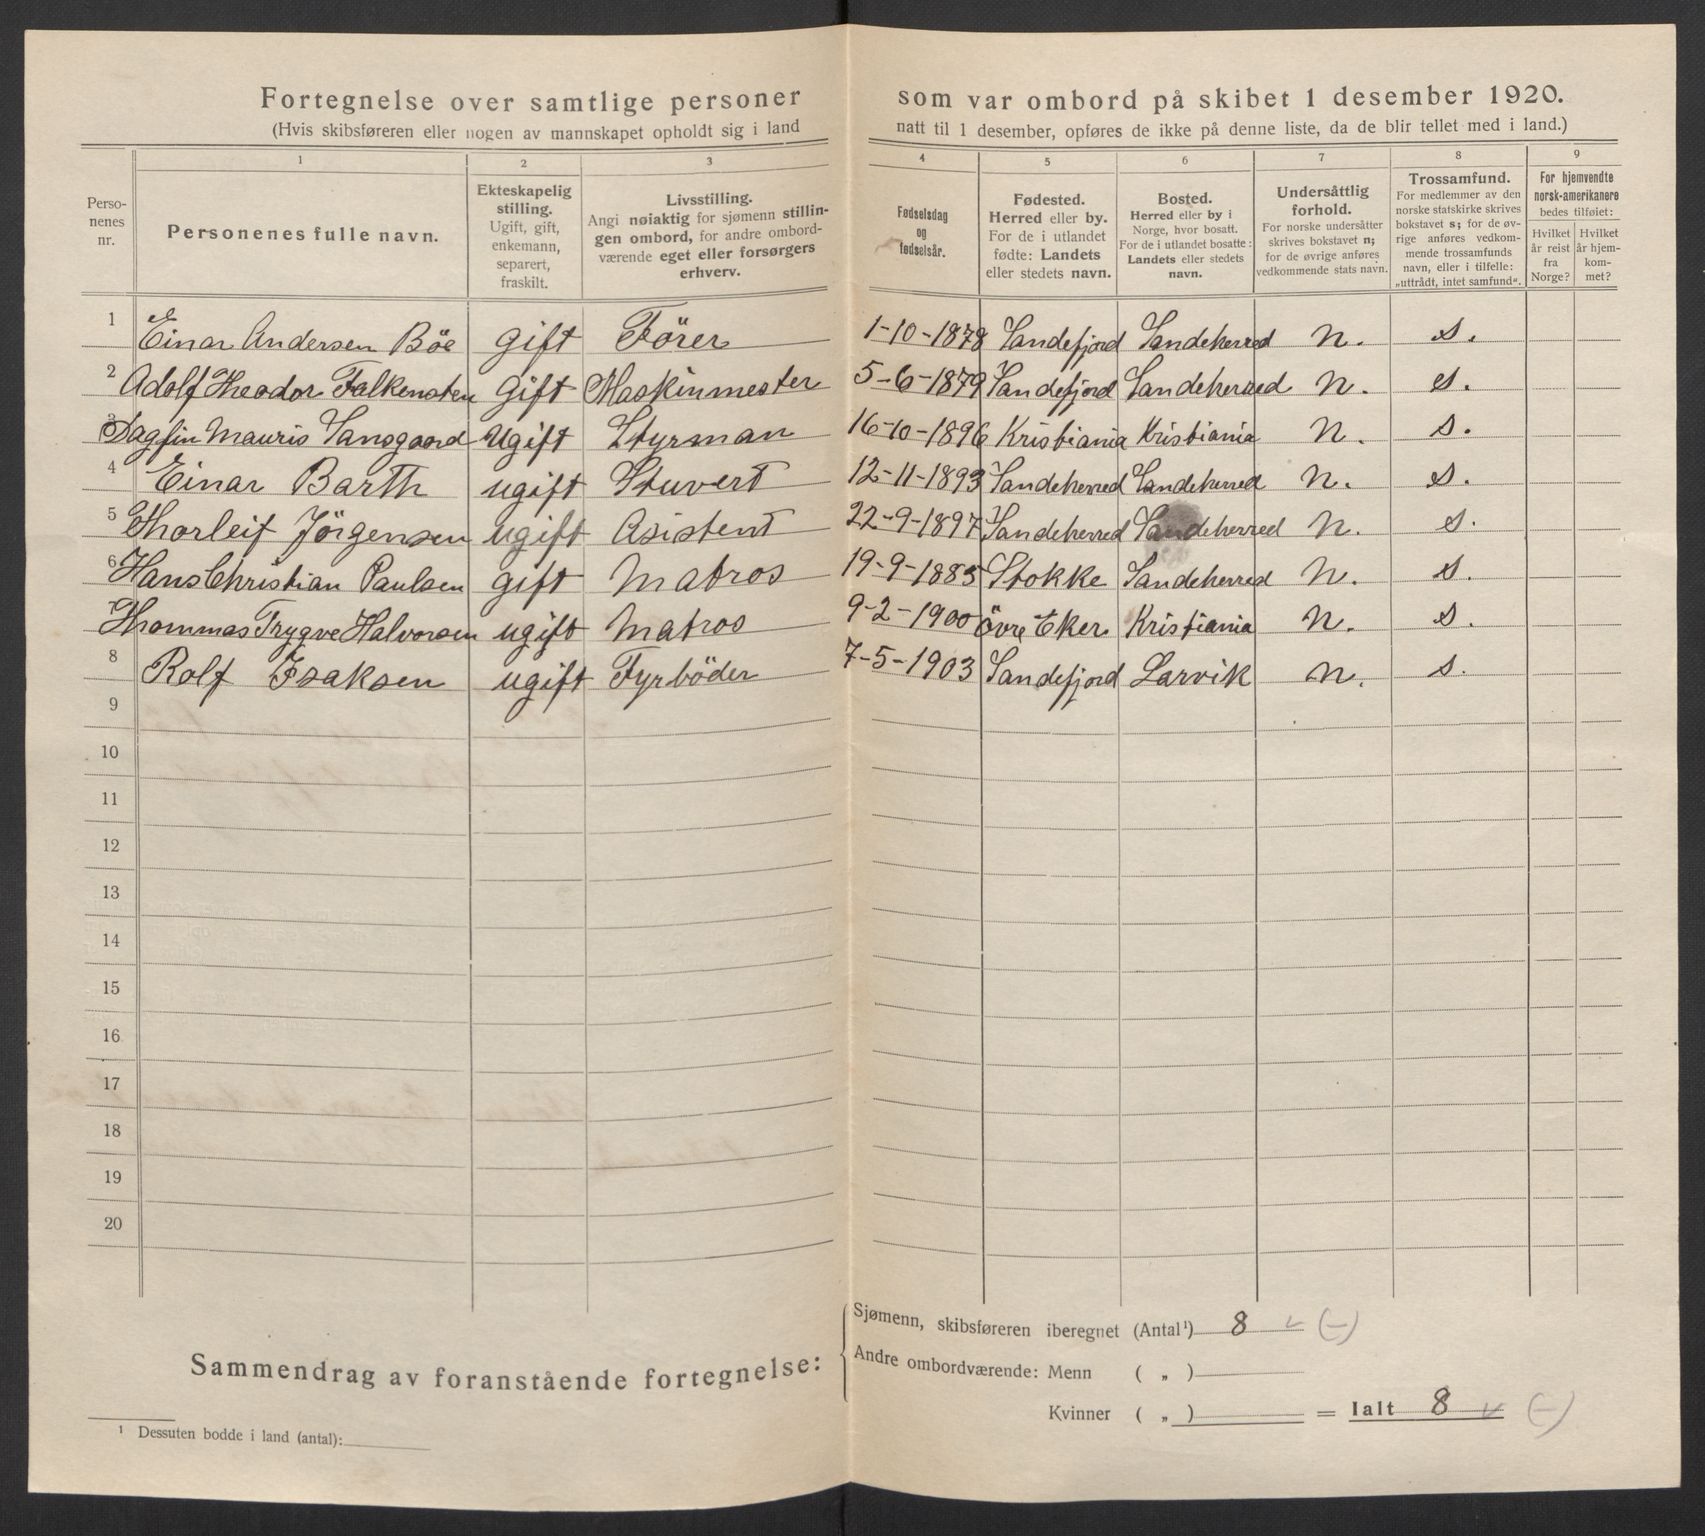 Fortegnelse over samtlige personer som var ombord på skibet 1 desember 1920.
(Hvis skibsføreren eller nogen av mannskapet opholdt sig i land natt til 1 desember, opføres de ikke på denne liste, da de blir tellet med i land.)
Personenes nr.
1 Personenes fulle navn.
2 Ekteskapelig stilling. Ugift, gift, enkemann, separert, fraskilt.
3 Livsstilling. Angi nøiaktig for sjømenn stillingen ombord, for andre ombordværende eget eller forsørgers erhverv.
4 Fødselsdag og fødselsår.
5 Fødested. Herred eller by. For de i utlandet fødte: Landets eller stedets navn.
6 Bosted. Herred eller by i Norge, hvor bosatt. For de i utlandet bosatte: Landets eller stedets navn.
7 Undersåttlig forhold. For norske undersåtter skrives bokstavet n; for de øvrige anføres vedkommende stats navn.
8 Trossamfund. For medlemmer av den norske statskirke skrives bokstavet s; for de øvrige anføres vedkommende trossamfunds navn, eller i tilfelle: „uttrådt, intet samfund“.
9 For hjemvendte norsk-amerikanere bedes tilføiet: Hvilket år reist fra Norge? Hvilket år hjemkommet?
1 Einar Andersen Böe gift Förer 1-10-1878 Sandefjord Sandeherred n. s.
2 Adolf Theodor Falkensten gift Maskinmester 5-6-1879 Sandefjord Sandeherred n. s.
3 Dagfin Mauris Sansgaard Ugift Styrman 16-10-1896 Kristiania Kristiania n. s.
4 Einar Barth ugift Stuvert 12-11-1893 Sandeherred Sandeherred n. s.
5 Thorleif Jörgensen ugift Asistent 22-9-1897 Sandeherred Sandeherred n. s.
6 Hans Christian Paulsen gift Matros 19-9-1885 Stokke Sandeherred n. s.
Thommas Trygve Halvorsen ugift Matros 9-2-1900 övre Eker. Kristiania n. s.
8 Rolf Isaksen ugift Fyrböder 7-5-1903 Sandefjord Larvik n. s.
9
10
11
12
13
14
15
16
17
18
19
20
Sammendrag av foranstående fortegnelse:
Sjømenn, skibsføreren iberegnet (Antal¹) 8 (—)
Andre ombordværende: Menn ( „ )
Kvinner ( „ ) = Ialt 8 (—)
¹ Dessuten bodde i land (antal):